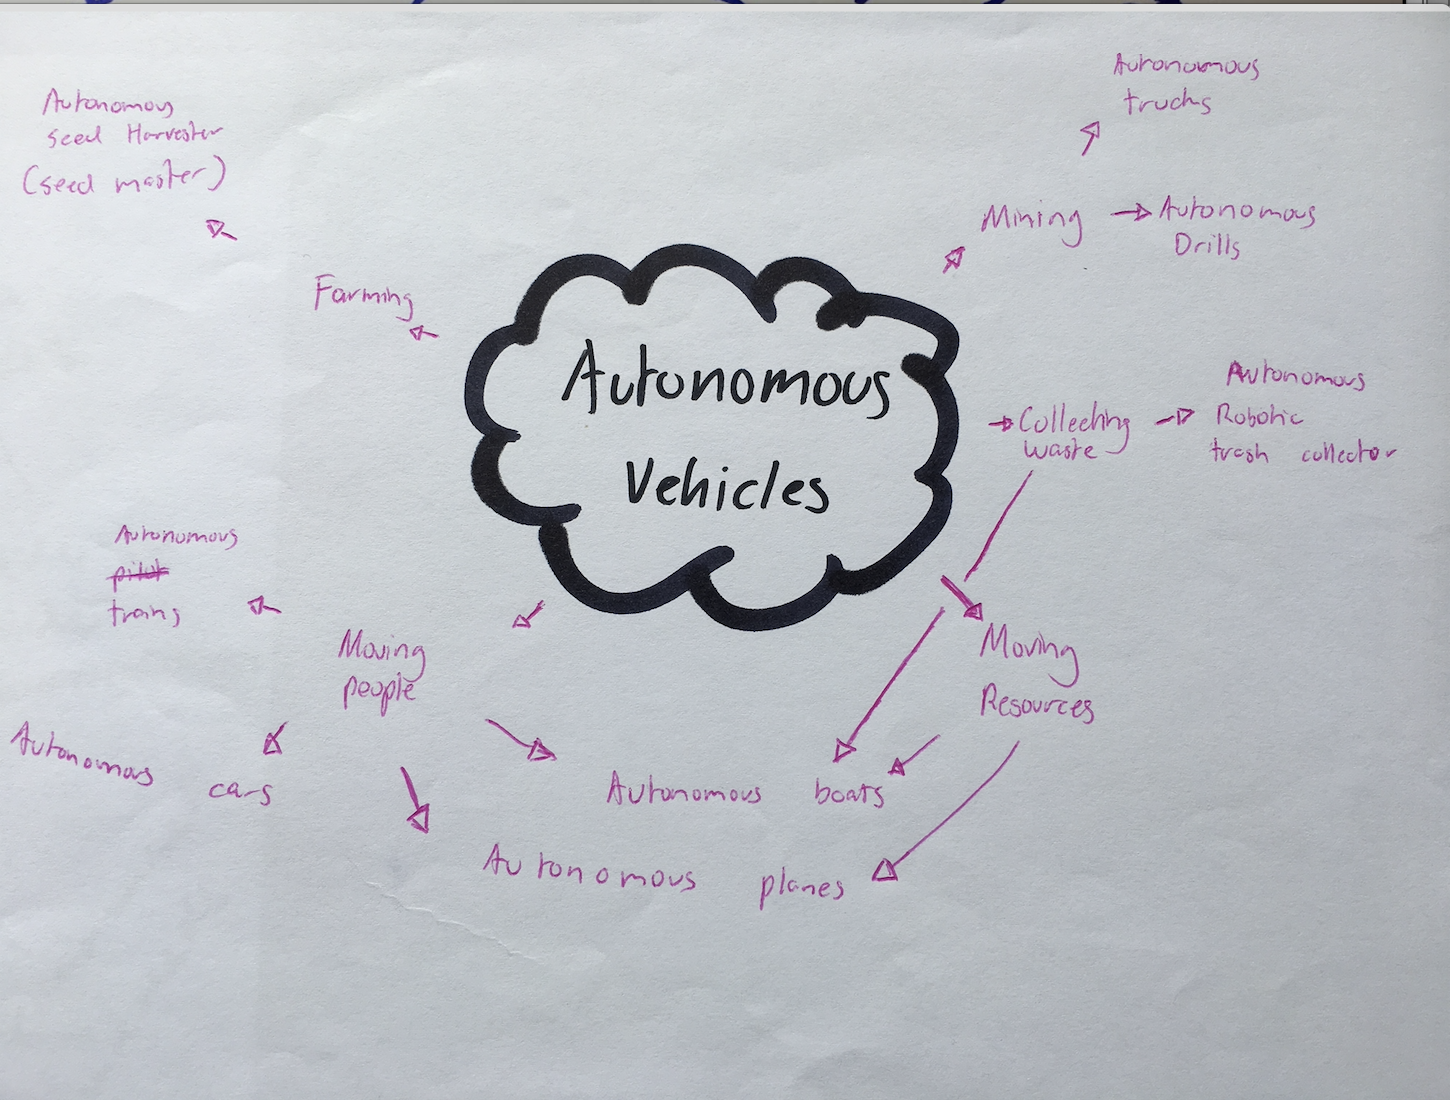 Autonomous
Vehicles
Farming
Autonomous
seed Harvester
(seed master)
Mining
Autonomous
trucks
Autonomous
Drills
Collecting
waste
Autonomous
Robotic
trash collector
Moving
Resources
Moving
people
Autonomous
pilot
trains
Autonomous cars
Autonomous boats
Autonomous planes